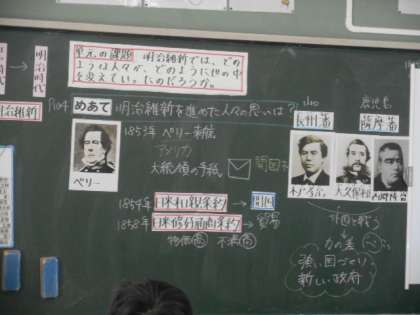 明治時代
単元の課題 明治維新では、どの
ような人々が、どのように世の中
を変えていったのだろうか。
明治維新
P104 めあて 明治維新を進めた人々の思いは?
1853年 ペリー来航
アメリカ
大統領の手紙
開国
ペリー
1854年 日米和親条約 → 開国
1858年 日米修好通商条約 → 貿易
物価高 不満
長州藩
鹿児島
薩摩藩
木戸孝允
大久保利通
西郷隆盛
外国と戦う
力の差
強い国づくり
新しい政府